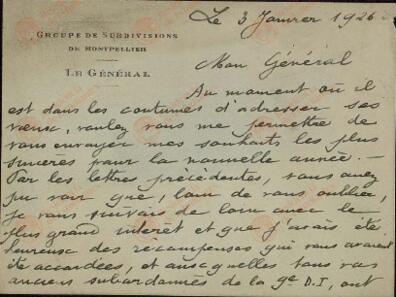 Le 3 Janvier 1926
GROUPE DE SUBDIVISIONS
DE MONTPELLIER
LE GÉNÉRAL
Mon Général
Au moment où il
est dans les coutumes d'adresser ses
vœux, voulez vous me permettre de
vous envoyer mes souhaits les plus
sincères pour la nouvelle année. —
Par les lettres précédentes, vous avez
pu voir que, loin de vous oublier,
je vous suivais de loin avec le
plus grand intérêt et que j'avais été
heureuse des récompenses qui vous avaient
été accordées, et auxquelles tous vos
anciens subordonnés de la 9e D.I, ont